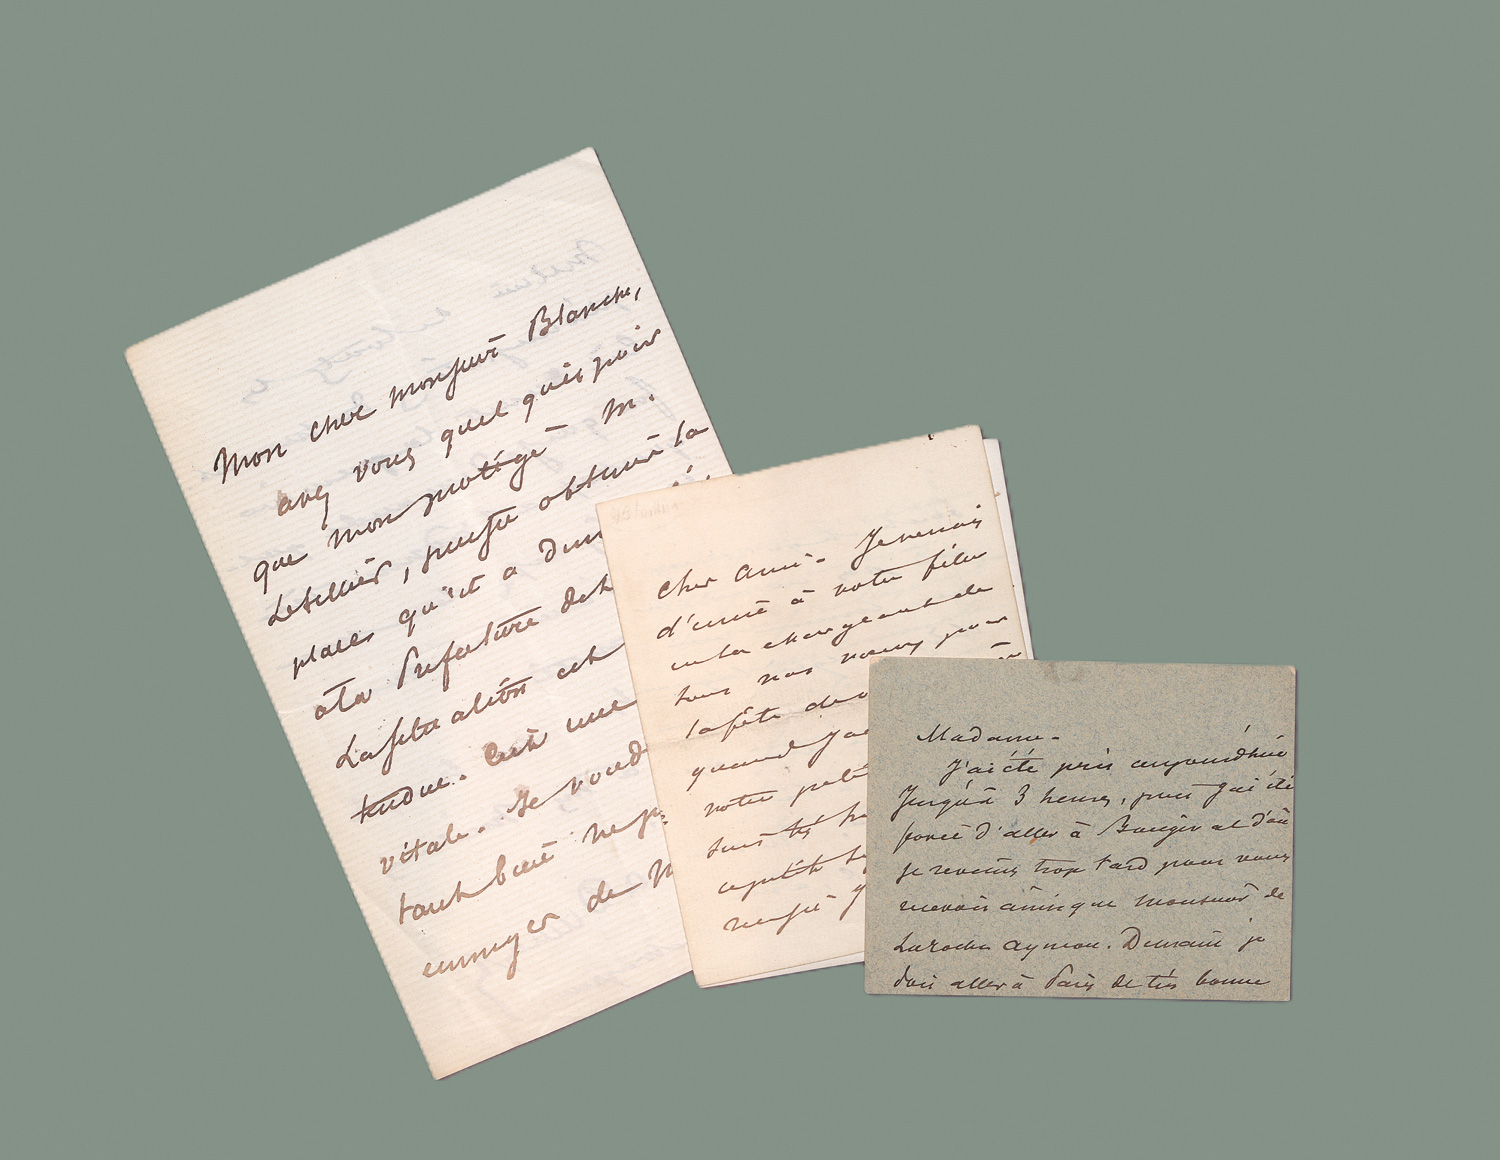 Mon cher monsieur Blanche,
avez vous quel qu'espoir
que mon protégé M.
Letellier, puisse obtenir la
place qu'il a dem
à la Préfecture de
La situation est
tendue. C'est une
vitale. Je voud
tout bien
ennuyer de
Cher ami. Je venais
d'écrire à votre fille
en la chargeant de
tous nos vœux pour
la fête de
quand j'ai
votre petit
suis très
Madame.
J'ai été pris aujourd'hui
jusqu'à 3 heures, puis j'ai été
forcé d'aller à Bougival d'où
je reviens trop tard pour vous
recevoir ainsi que monsieur de
Laroche aymon. Demain je
dois aller à Paris de très bonne